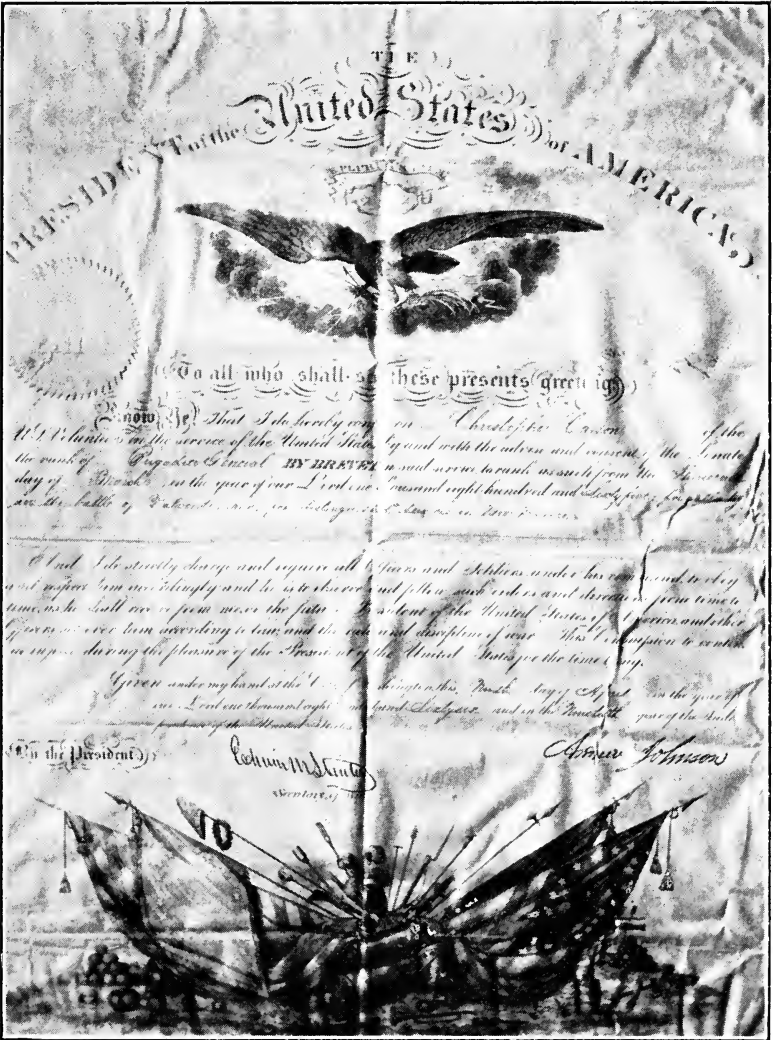 THE
United States
PRESIDENT of the of AMERICA,
To all who shall see these presents greeting
Know Ye, That I do hereby on Christopher Carson of the
U.S. Volunteers in the service of the United States by and with the advice and consent of the Senate
the rank of Brigadier General BY BREVET in said service to rank as such from the
day of March in the year of our Lord one thousand eight hundred and Sixty five for gallantry
in the battle of and for distinguished services in New Mexico
And I do strictly charge and require all Officers and Soldiers under his command to obey
and respect him accordingly and he is to observe and follow such orders and directions from time to
time, as he shall receive from me or the future President of the United States of America and other
Officers set over him according to law, and the rules and discipline of war. This Commission to continue
in force during the pleasure of the President of the United States for the time being.
Given under my hand at the City of Washington this, Ninth day of April in the year of
our Lord one thousand eight hundred and Sixty six and in the Ninetieth year of the Inde
pendence of the United States
By the President
Edwin M Stanton
Andrew Johnson
Secretary of War
10